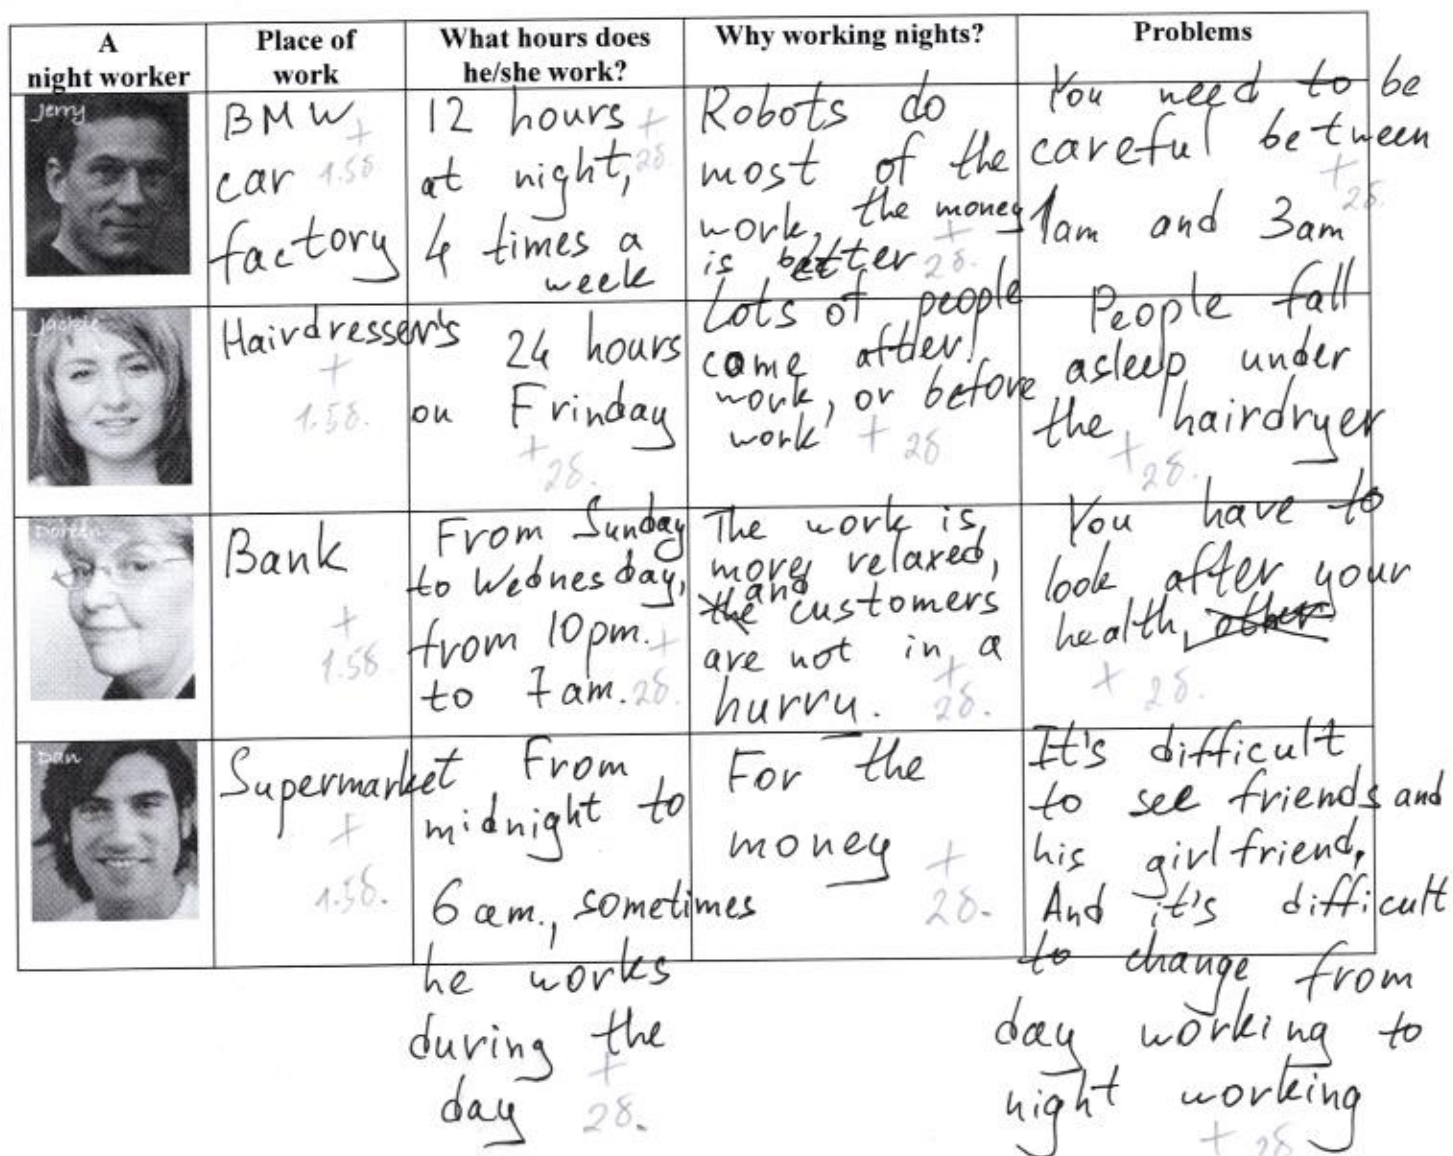 A
night worker
Place of
work
What hours does
he/she work?
Why working nights?
Problems
Jerry
BMW
car
factory
+
1.5б.
12 hours
at night,
4 times a
week
+
2б.
Robots do
most of the
work, the money
is better
+
2б.
You need to be
careful between
1am and 3am
+
2б.
Jackie
Hairdresser's
+
1.5б.
24 hours
on Frinday
+
2б.
Lots of people
come after
work, or before
work
+ 2б
People fall
asleep under
the hairdryer
+
2б.
Doreen
Bank
+
1.5б
From Sunday
to Wednesday,
from 10pm.
to 7am.
+
2б.
The work is
more relaxed,
and
the customers
are not in a
hurry.
+
2б.
You have to
look after your
health, other
+ 2б.
Dan
Supermarket
+
1.5б.
From
midnight to
6am., sometimes
he works
during the
day
+
2б.
For the
money
+
2б.
It's difficult
to see friends and
his girlfriend,
And it's difficult
to change from
day working to
night working
+ 2б